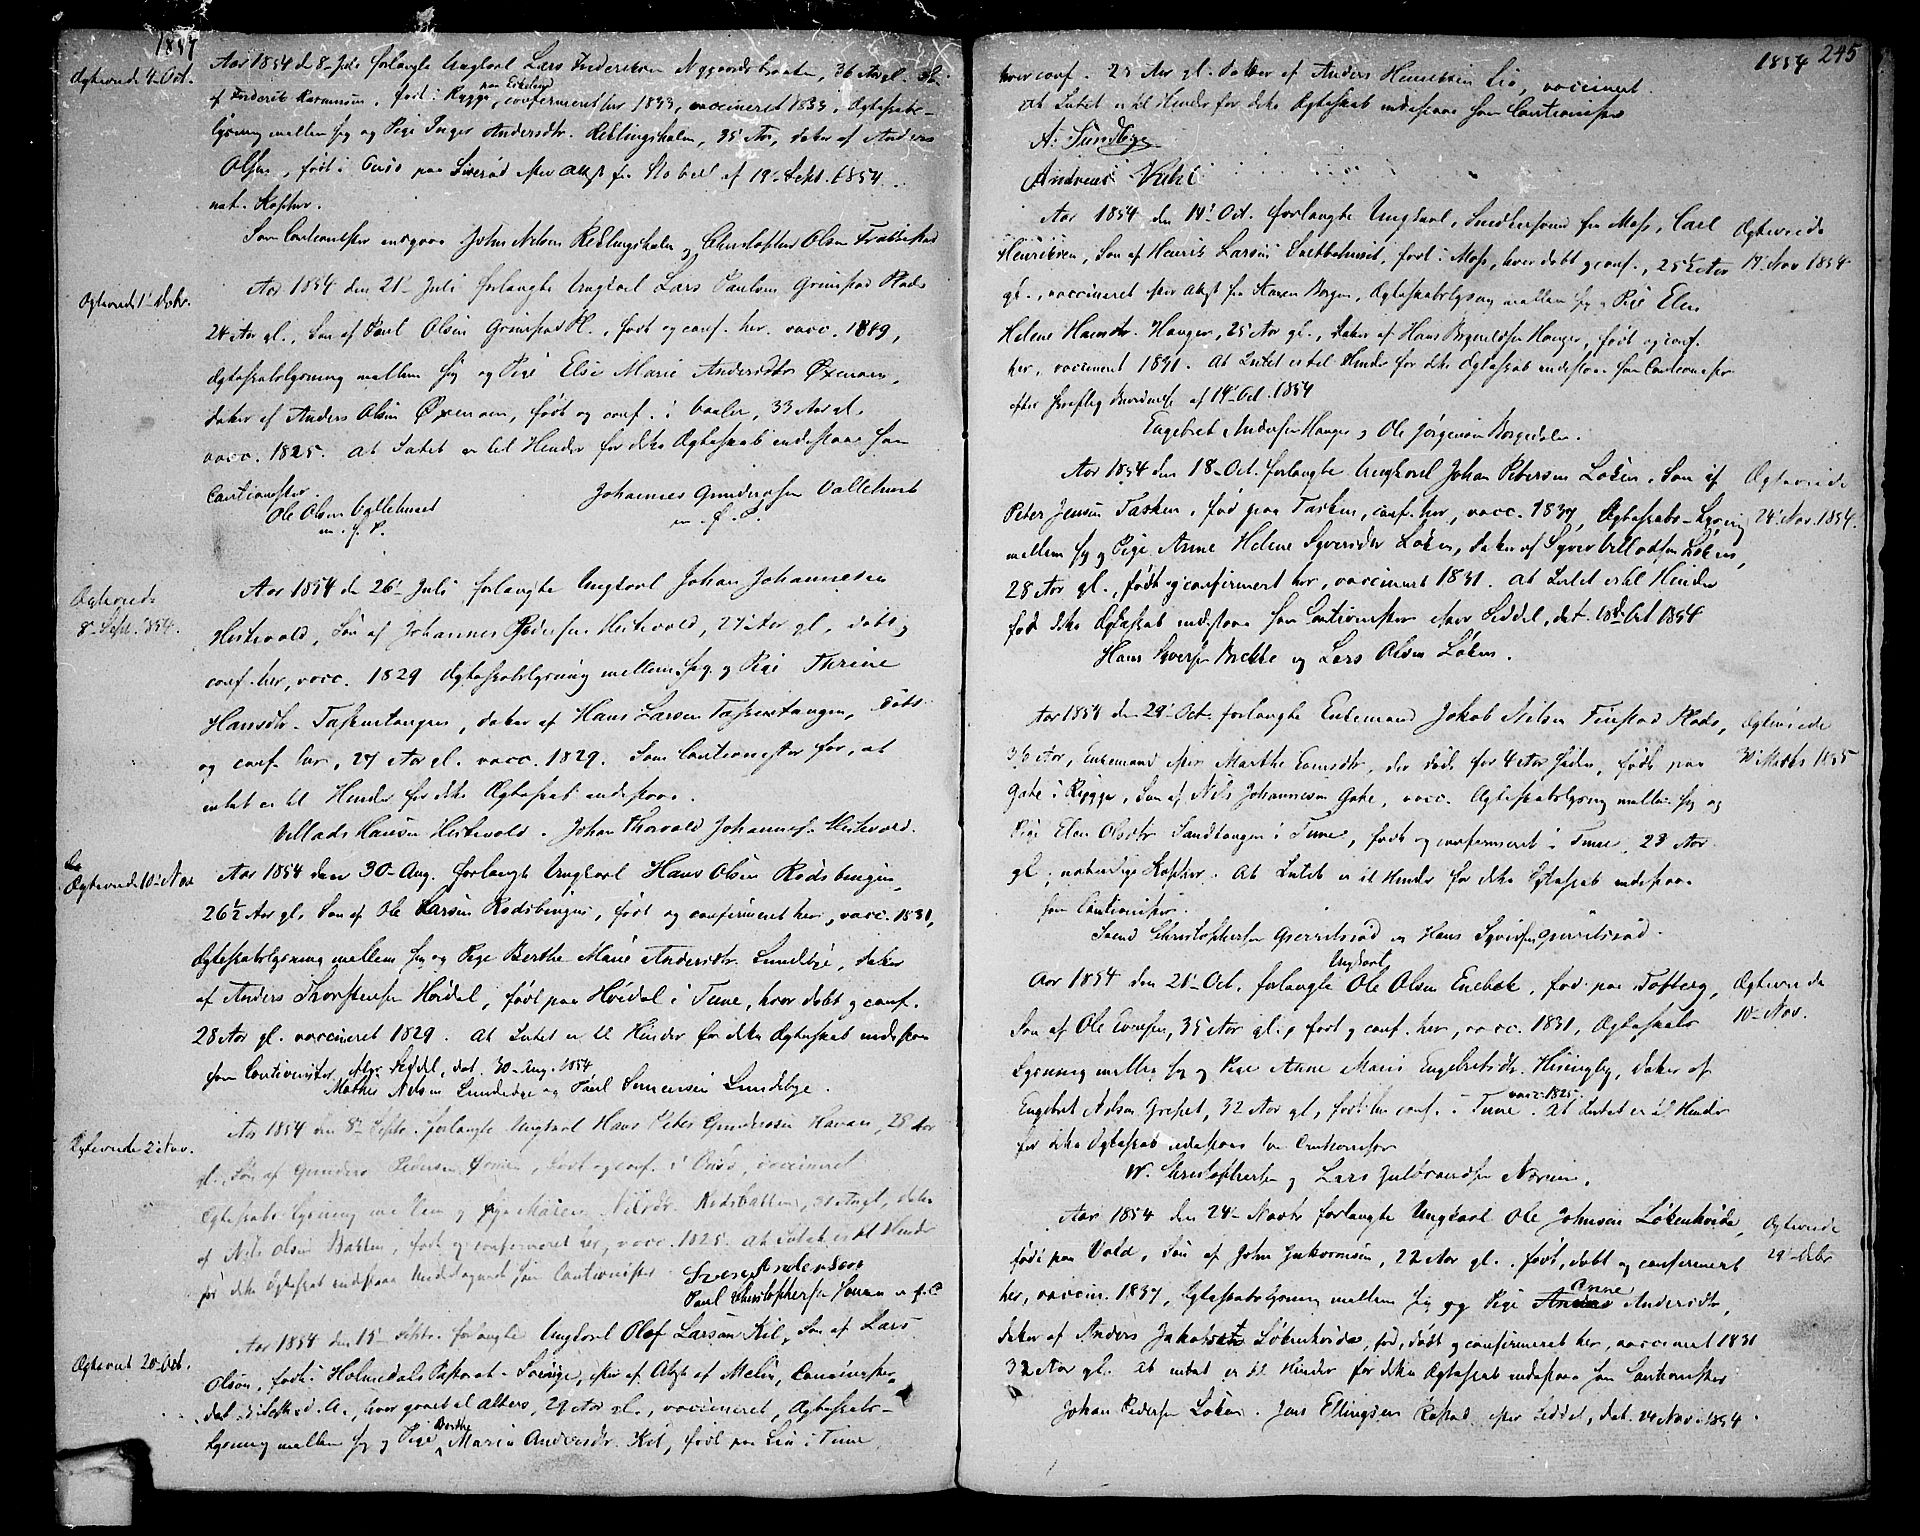 1854
Ægteviede 4 Oct.
Aar 1854 d 8 Juli forlangte Ungkarl Lars Frederiksen Nygaardsbraaten, 36 Aar gl. Søn
af Frederik Rasmussen, født i Rygge paa Eskelund, confirmeret her 1833, vaccineret 1833, Ægteskabs-
lysning mellem sig og Pige Inger Andersdtr. Reklingsholm, 35 Aar, datter af Anders
Olsen, født i Onsø paa efter Attest fra af 19 Sept. 1854
nat. Kopper.
Som Cautionister indgaae John Nilsen Reklingsholm og Christopher Olsen
Ægteviede 1 Decbr.
Aar 1854 den 21 Juli forlangte Ungkarl Lars Paulsen Grimstad Plads
24 Aar gl., Søn af Paul Olsen Grimstad Pl., født og conf. her. vacc. 1849,
Ægteskabslysning mellem sig og Pige Else Marie Andersdtr Oxenoen,
datter af Anders Olsen Oxenoen, født og conf. i Vaaler, 33 Aar gl.
vacc. 1825. At Intet er til Hinder for dette Ægteskab indestaae som
Cautionister.
Ole Olsen Vallehuset
m. f. P.
Johannes Gundersen Vallehuset
m. f. P.
Ægteviede
8 Sept. 1854.
Aar 1854 den 26 Juli forlangte Ungkarl Johan Johannesen
Hestevold, Søn af Johannes Pedersen Hestevold, 27 Aar gl, døbt og
conf. her, vacc. 1829 Ægteskabslysning mellem sig og Pige Thrine
Hansdtr. Taskentangen, datter af Hans Larsen Taskentangen, døbt
og conf. her, 27 Aar gl. vacc. 1829. Som Cautionister for, at
intet er til Hinder for dette Ægteskab indestaae.
Villads Hansen Hestevold. Johan Thorvald Johannesen Hestevold.
Ægteviede 10 Nov
Aar 1854 den 30 Aug. forlangte Ungkarl Hans Olsen Rødsbingen,
26½ Aar gl. Søn af Ole Larsen Rødsbingen, født og confirmeret her, vacc. 1831,
Ægteskabslysning mellem sig og Pige Berthe Marie Andersdtr. Lundebye, datter
af Anders Thorstensen Hvidal, født paa Hvidal i Tune, hvor døbt og conf.
28 Aar gl. vaccineret 1829. At Intet er til Hinder for dette Ægteskab indestaae
som Cautionister, efter Seddel, dat. 30 Aug. 1854
Mathis Nilsen Lundebye og Paul Simensen Lundebye.
Ægteviede 2 Nov.
Aar 1854 den 8 Septbr. forlangte Ungkarl Hans Peter Gundersen Haven, 28 Aar
gl., Søn af Gunders Pedersen født og conf. i Onsø, vaccineret
Ægteskabs Lysning mellem sig og Pige Maren Nilsdtr. Rødsbakken, 31 Aar gl, datter
af Nils Olsen Bakken, født og confirmeret her, vacc. 1825. At Intet er til Hinder
for dette Ægteskab indestaae Undertegnede som Cautionister
Svend Andersson
Paul Christophersen m. f. P.
Ægteviet 20 Oct.
Aar 1854 den 15 Septbr. forlangte Ungkarl Olof Larsson Kil, Søn af Lars
Olson, født i Holmedals Pastorat - Sverige, efter Attest af Melin,
dat. d. A., hvor gaaet til Alters, 27 Aar gl., vaccineret, Ægteskabs-
Lysning mellem sig og Pige Berthe Maria Andersdtr. Kil, født paa Lia i Tune
1854 245
hvor conf. 25 Aar gl. datter af Anders Henriksen Lia, vaccineret.
At Intet er til Hinder for dette Ægteskab indestaae som Cautionister
A. Sundbye
Andreas
Aar 1854 den 14 Oct. forlangte Ungkarl, Snedkersvend fra Moss, Carl
Henriksen, Søn af Henrik Larsen født i Moss, hvor døbt og conf., 25½ Aar
gl., vaccineret efter Attest fra Ægteskabslysning mellem sig og Pige Elen
Helene Hansdtr. Hauger, 25 Aar gl., datter af Hans Hauger, født og conf.
her, vaccineret 1831. At Intet er til Hinder for dette Ægteskab indestaae som Cautionister
efter skriftlig af 14 Oct. 1854
Engebret Andersen Hauger og Ole Jørgensen Borgedalen.
Ægteviede
17 Nov 1854
Aar 1854 den 18 Oct. forlangte Ungkarl Johan Petersen Løken, Søn af
Peter Jensen Tasken, fød paa Tasken, conf. her, vacc. 1837, Ægteskabs-Lysning
mellem sig og Pige Anne Helene Syversdtr Løken, datter af Syver Villadsen Løken,
28 Aar gl., født og confirmeret her, vaccineret 1831. At Intet er til Hinder
for dette Ægteskab indestaae som Cautionister efter Seddel, dat. 18de Oct 1854
Hans Syversen Brekke og Lars Olsen Løken.
Ægteviede
24 Nov. 1854.
Aar 1854 den 29 Oct. forlangte Enkemand Jakob Nilsen Finstad Plads,
36 Aar, Enkemand efter Marthe Evensdtr, der døde for 4 Aar siden, født paa
Gate i Rygge, Søn af Nils Johannesen Gate, vacc. Ægteskabslysning mellem sig og
Pige Elen Olsdtr Sandtangen i Tune, født og confirmeret i Tune, 23 Aar
gl, naturlige Kopper. At Intet er til Hinder for dette Ægteskab indestaae
som Cautionister.
Svend Christophersen Gjerrelsrød og Hans Syversen Gjerrelsrød.
Ægteviede
30 Marts 1855
Aar 1854 den 21 Oct. forlangte Ungkarl Ole Olsen Enebek, fød paa Tofberg,
Søn af Ole Evensen, 35 Aar gl., født og conf. her, vacc. 1831, Ægteskabs
Lysning mellem sig og Pige Anne Marie Engebretsdtr. Hisingby, datter af
Engebret Nilsen Grefset, 32 Aar gl, født her conf. i Tune vacc. 1825. At Intet er til Hinder
for dette Ægteskab indestaae som Cautionister
W. Christophersen og Lars Guldbrandsen Norum.
Ægteviede
10 Nov.
Aar 1854 den 24 Novbr forlangte Ungkarl Ole Johnsen Løkenhvida,
født paa Vold, Søn af John 22 Aar gl. født, døbt og confirmeret
her, vaccin. 1837, Ægteskabslysning mellem sig og Pige Anne Andersdtr,
datter af Anders Jakobsen Løkenhvida, fød, døbt og confirmeret her, vaccineret 1831
32 Aar gl. At intet er til Hinder for dette Ægteskab indestaae som Cautionister
Johan Pedersen Løken. Jens Ellingsen Rostad efter Seddel, dat. 24 Nov. 1854.
Ægteviede
29 Decbr